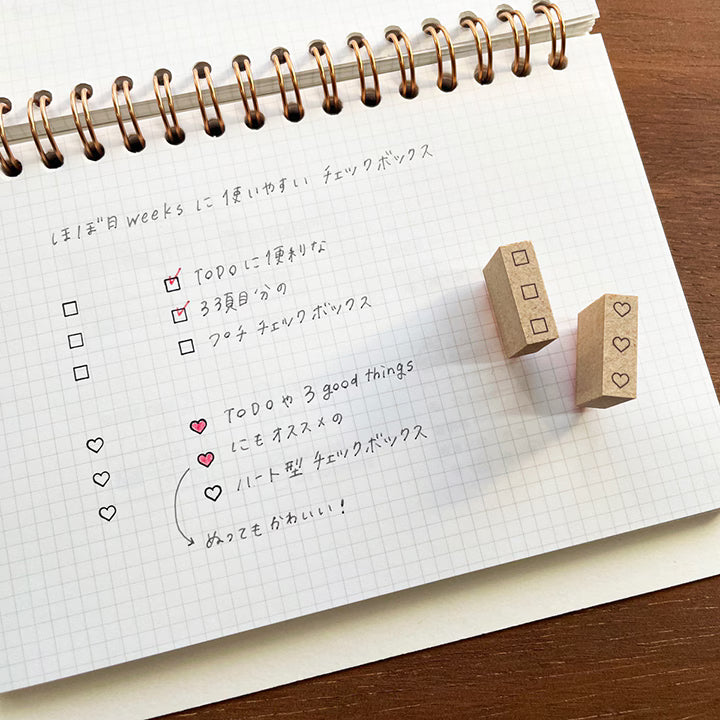 ほぼ日weeks に 使いやすい チェックボックス
TODOに便利な
33項目分の
プチ チェックボックス
TODOや 3 good things
にもオススメの
ハート型 チェックボックス
ぬってもかわいい!